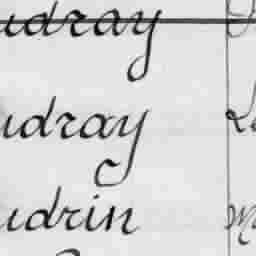 udray
udray
udrin